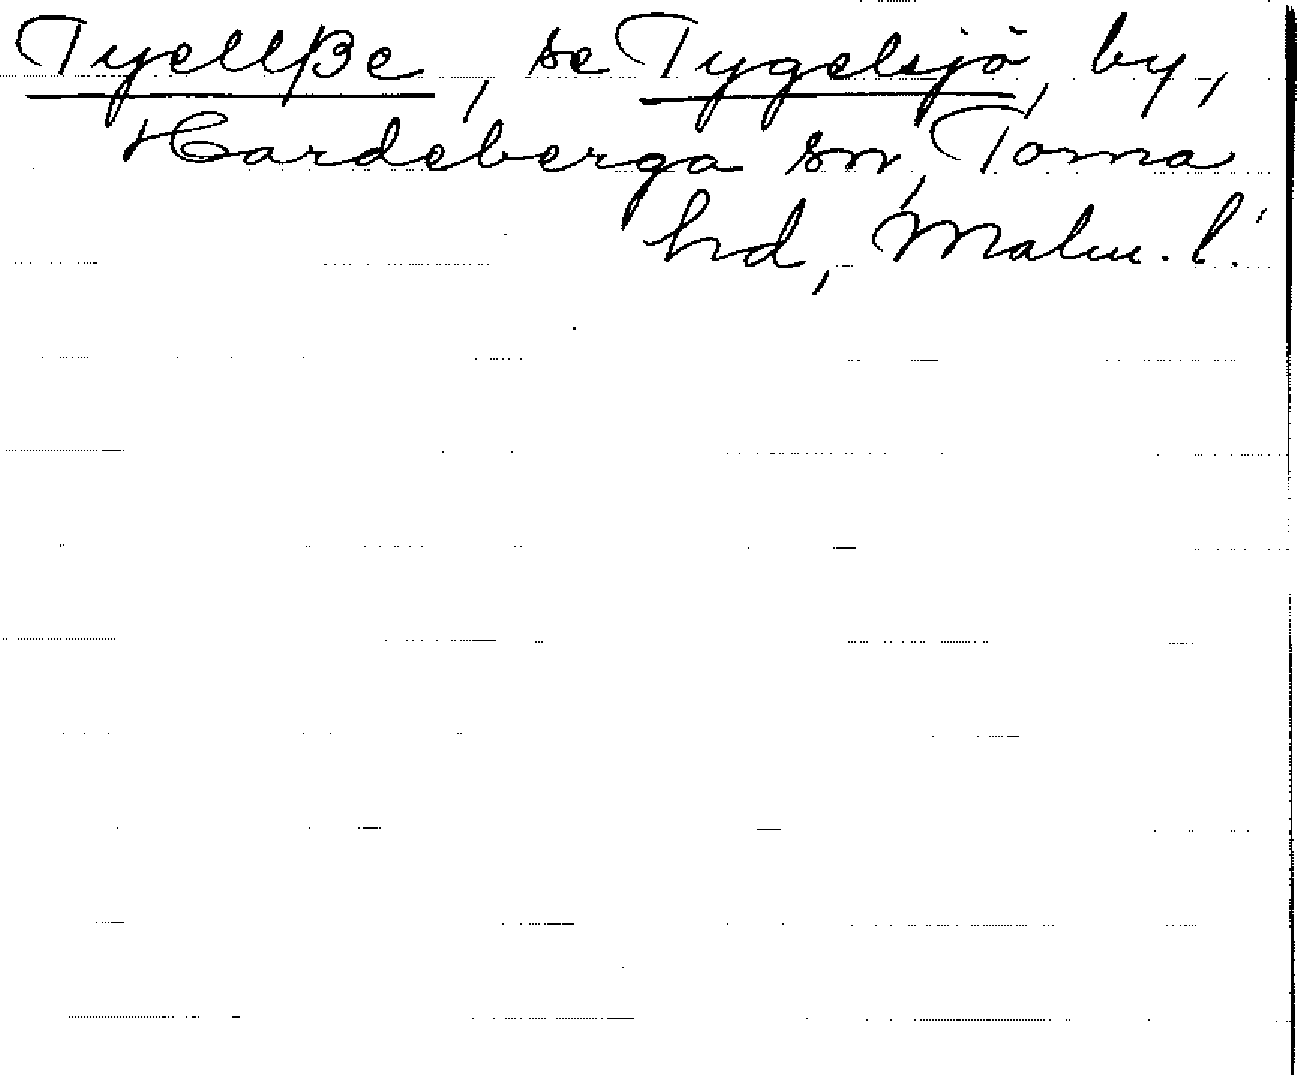 Tyellße, se Tygelsjö, by,
Hardeberga sn, Torna
hd, Malm. l.